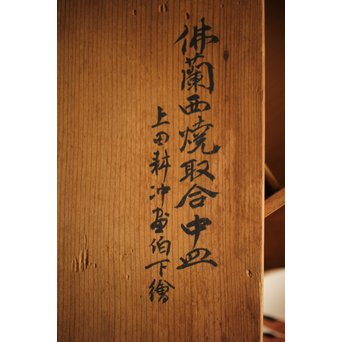 佛蘭西焼取合中皿
上田耕冲画伯下繪